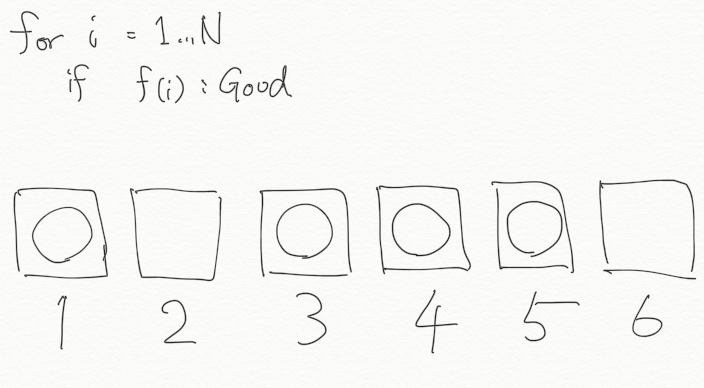 for i = 1...N
if f(i) : Good
1 2 3 4 5 6